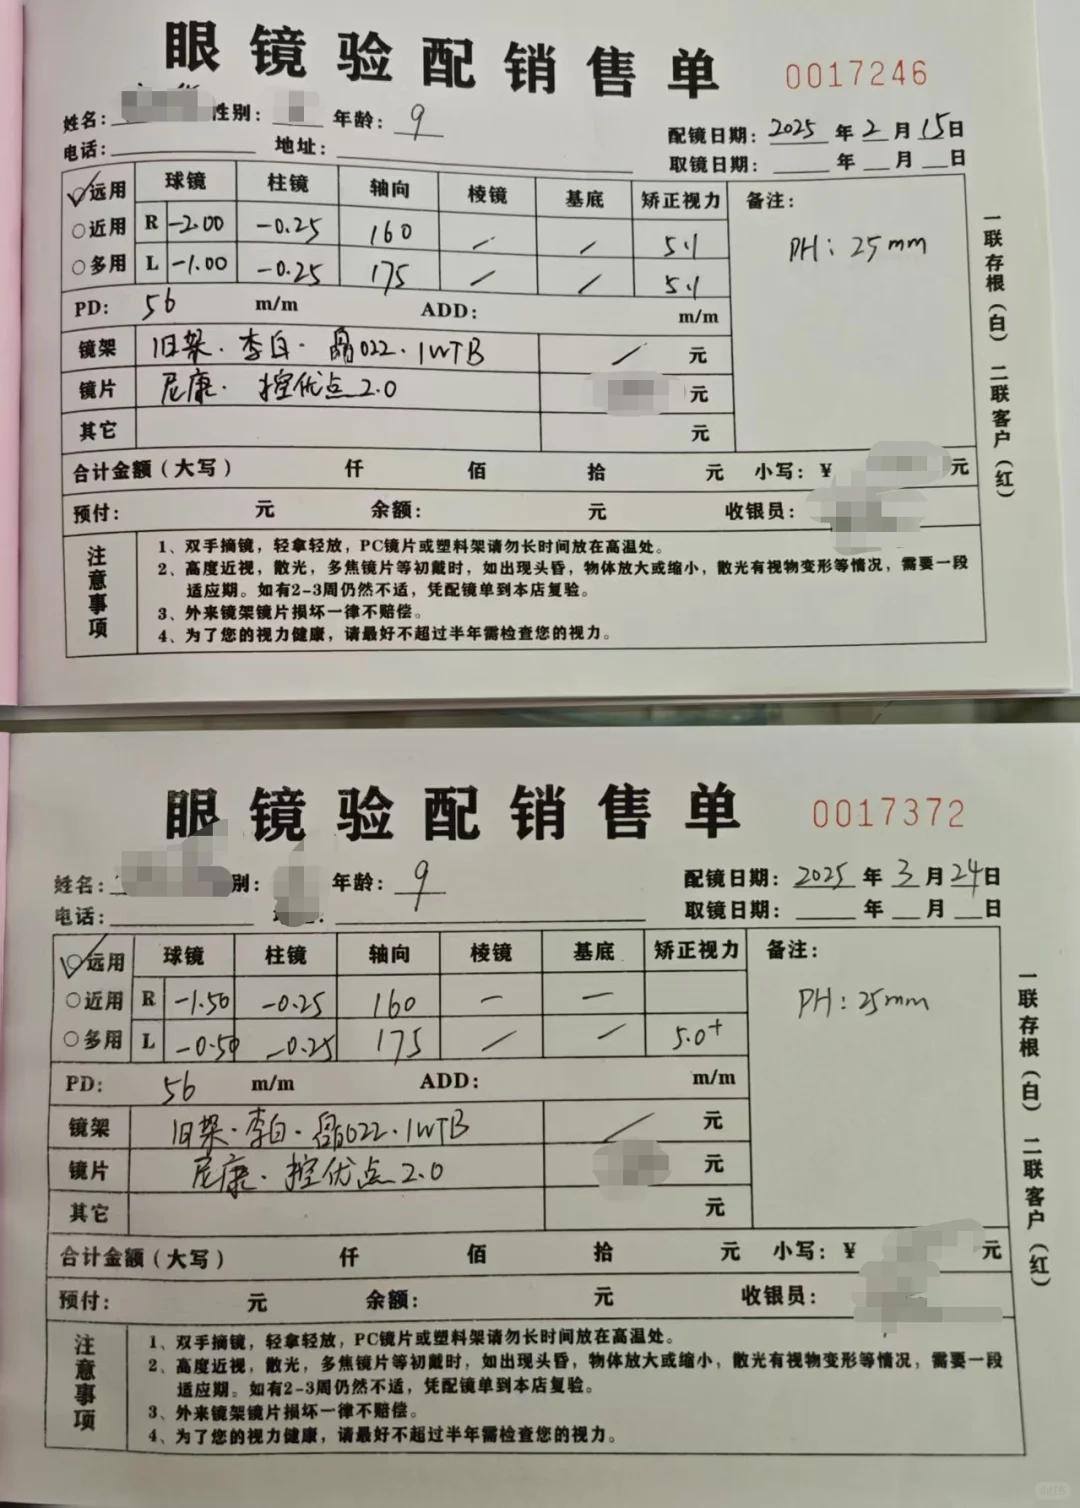 眼镜验配销售单 0017246
姓名: 性别: 年龄: 9 配镜日期: 2025 年 2 月 15 日
电话: 地址: 取镜日期: 年 月 日
远用 球镜 柱镜 轴向 棱镜 基底 矫正视力 备注:
近用 R -2.00 -0.25 160 / / 5.1 PH: 25mm
多用 L -1.00 -0.25 175 / / 5.1
PD: 56 m/m ADD: m/m
镜架 旧架·李白·晶022·1WTB / 元
镜片 尼康· 控优点2.0 元
其它 元
合计金额(大写) 仟 佰 拾 元 小写: ¥ 元
预付: 元 余额: 元 收银员:
注意事项
1、双手摘镜,轻拿轻放,PC镜片或塑料架请勿长时间放在高温处。
2、高度近视,散光,多焦镜片等初戴时,如出现头昏,物体放大或缩小,散光有视物变形等情况,需要一段
适应期。如有2-3周仍然不适,凭配镜单到本店复验。
3、外来镜架镜片损坏一律不赔偿。
4、为了您的视力健康,请最好不超过半年需检查您的视力。
一联存根(白) 二联客户(红)
眼镜验配销售单 0017372
姓名: 别: 年龄: 9 配镜日期: 2025 年 3 月 24 日
电话: 取镜日期: 年 月 日
远用 球镜 柱镜 轴向 棱镜 基底 矫正视力 备注:
近用 R -1.50 -0.25 160 — — PH: 25mm
多用 L -0.50 -0.25 175 / / 5.0+
PD: 56 m/m ADD: m/m
镜架 旧架·李白·晶022·1WTB / 元
镜片 尼康· 控优点2.0 元
其它 元
合计金额(大写) 仟 佰 拾 元 小写: ¥ 元
预付: 元 余额: 元 收银员:
注意事项
1、双手摘镜,轻拿轻放,PC镜片或塑料架请勿长时间放在高温处。
2、高度近视,散光,多焦镜片等初戴时,如出现头昏,物体放大或缩小,散光有视物变形等情况,需要一段
适应期。如有2-3周仍然不适,凭配镜单到本店复验。
3、外来镜架镜片损坏一律不赔偿。
4、为了您的视力健康,请最好不超过半年需检查您的视力。
一联存根(白) 二联客户(红)